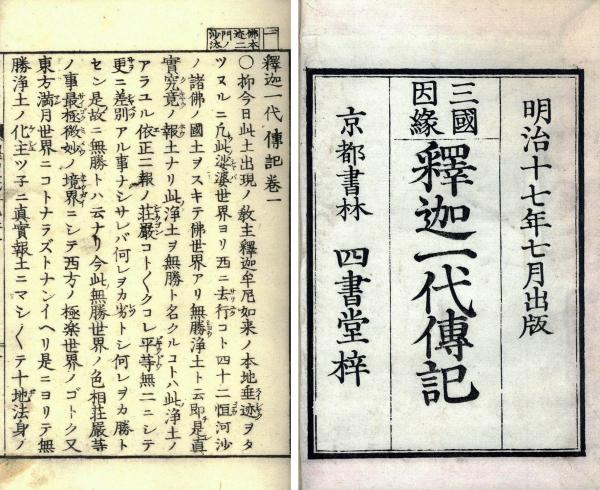 明治十七年七月出版
三國
因縁
釋迦一代傳記
京都書林 四書堂梓
一
佛本
迹二
門ノ
沙汰
釋迦一代傳記卷一
〇抑今日此土出現ノ教主釋迦牟尼如来ノ本地垂迹ヲタ
ツヌルニ凡此娑婆世界ヨリ西ニ去行コト四十二恒河沙
ノ諸佛ノ國土ヲスキテ佛世界アリ無勝浄土ト云即是真
實究竟ノ報土ナリ此浄土ヲ無勝ト名クルコトハ此浄土ノ
アラユル依正二報ノ荘嚴コト〱クコレ平等無二ニシテ
更ニ差別アル事ナシサレバ何レヲカ劣トシ何レヲカ勝ト
セン是故ニ無勝トハ云ナリ今此無勝世界ノ色相荘嚴等
ノ事最極微妙ノ境界ニシテ西方ノ極楽世界ノゴトク又
東方満月世界ニコトナラズトナンイヘリ是ニヨリテ無
勝浄土ノ化主ツ子ニ真實報土ニマシ〱テ十地法身ノ